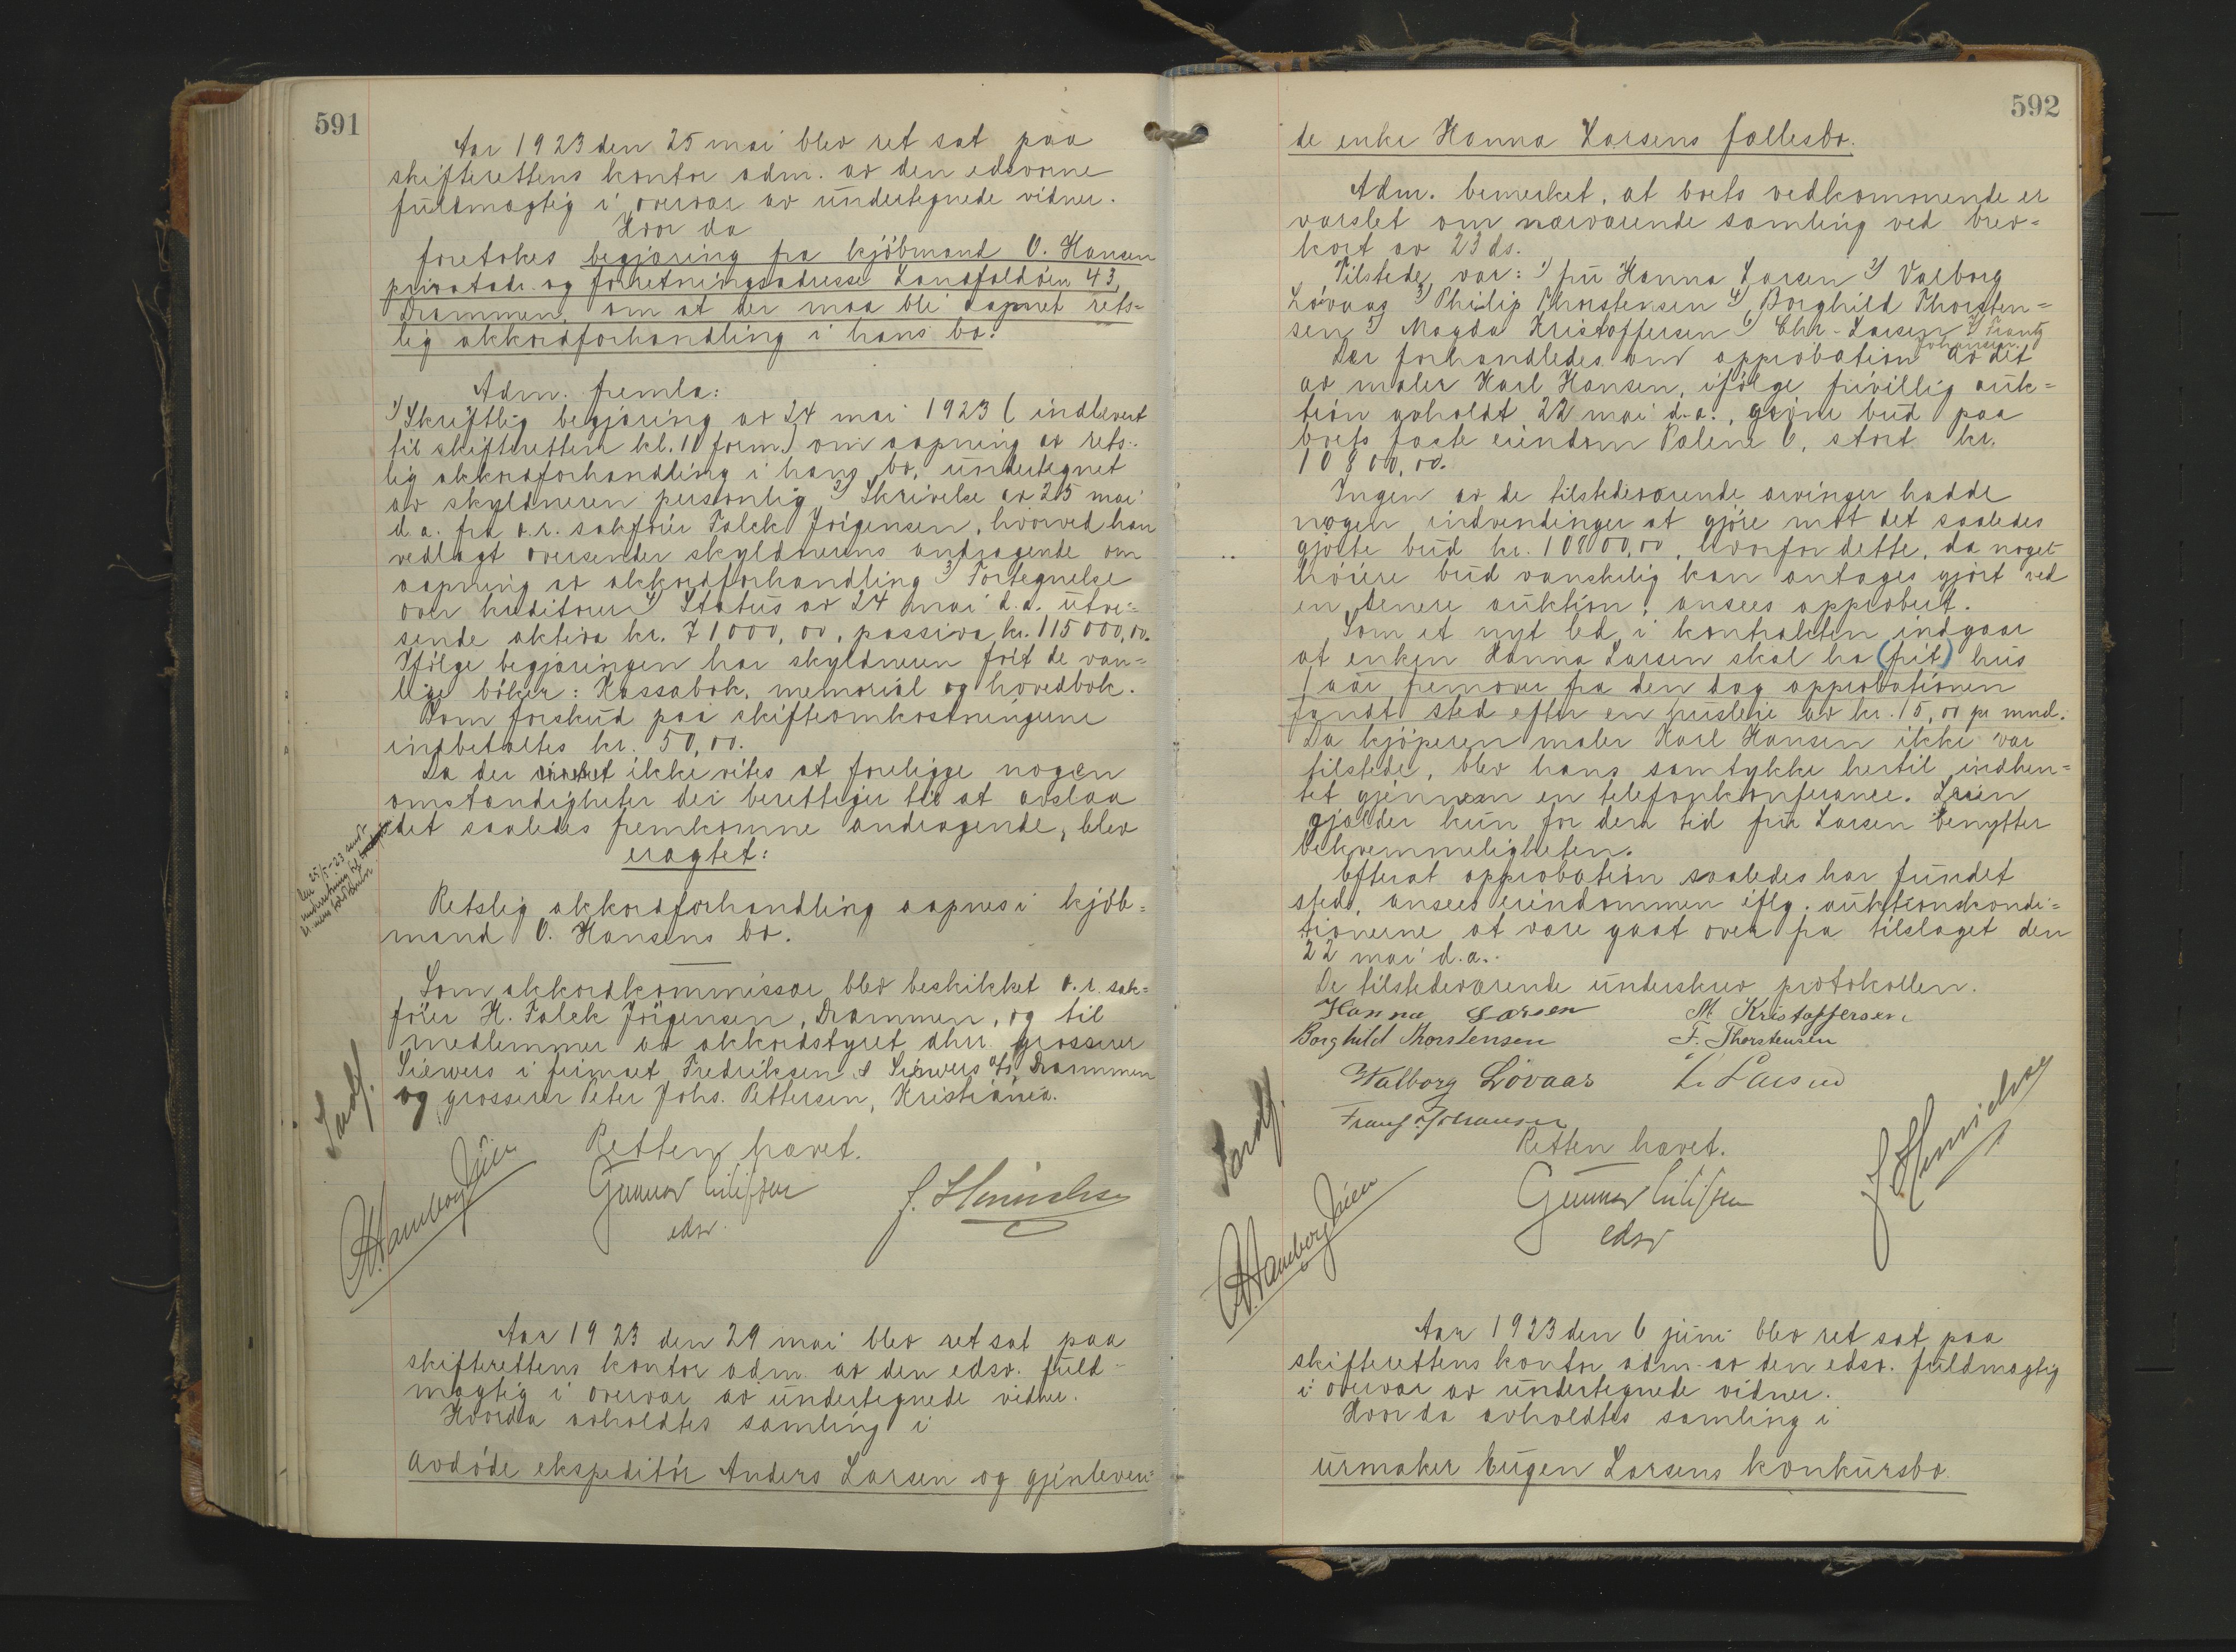 591
Aar 1923 den 25 mai blev ret sat paa
skifterettens kontor adm. av den edsvorne
fuldmægtig i overvær av undertegnede vidner.
Hvor da
foretokes begjæring fra kjøbmand O. Hansen
privatadr. og forretningsadresse Landfaldøen 43,
Drammen, om at der maa bli aapnet rets=
lig akkordforhandling i hans bo.
Adm. fremla:
1) Skriftlig begjæring av 24 mai 1923 (indlevert
til skifteretten kl. 11 form.) om aapning av rets-
lig akkordforhandling i hans bo, undertegnet
av skyldneren personlig 2) Skrivelse av 25 mai
d.a. fra o.r. sakfører Falck Jørgensen, hvorved han
vedlagt oversender skyldnerens andragende om
aapning av akkordforhandling 3) Fortegnelse
over kreditorer 4) Status av 24 mai d.a. utvi=
sende aktiva kr. 71000,00, passiva kr. 115000,00.
Ifølge begjæringen har skyldneren ført de van=
lige bøker: Kassabok, memorial og hovedbok.
Som forskud paa skifteomkostningerne
indbetaltes kr. 50,00.
Da der ikke vites at foreligge nogen
omstændigheter der berettiger til at avslaa
det saaledes fremkomne andragende, blev
eragtet:
den 25/5-23 sendt
Retslig akkordforhandling aapnes i kjøb=
mand O. Hansens bo.
Som akkordkommissær blev beskikket o.r. sak=
fører H. Falck Jørgensen, Drammen, og til
medlemmer av akkordstyret dhrr. grosserer
Siewers i firmaet Fredriksen & Siewers a/s, Drammen
og grosserer Peter Johs. Pettersen, Kristiania.
Retten hævet.
Gunnar
edsv.
Aar 1923 den 29 mai blev ret sat paa
skifterettens kontor adm. av den edsv. fuld-
mægtig i overvær av undertegnede vidner.
Hvorda avholdtes samling i
avdøde ekspeditør Anders Larsen og gjenleven=
592
de enke Hanna Larsens fællesbo.
Adm. bemerket, at boets vedkommende er
varslet om nærværende samling ved brev=
kort av 23 ds.
Tilstede var: 1) fru Hanna Larsen 2) Valborg
Løvaas 3) Philip Thorstensen 4) Borghild Thorsten=
sen 5) Magda Kristoffersen 6) Chr. Larsen 7) Frantz
Johansen.
Der forhandledes om approbation av det
av maler Karl Hansen, ifølge frivillig auk=
tion avholdt 22 mai d.a., gjorte bud paa
boets faste eiendom Pælene 6, stort kr.
10800,00.
Ingen av de tilstedeværende arvinger hadde
nogen indvendinger at gjøre mot det saaledes
gjorte bud kr. 10800,00, hvorfor dette, da noget
høiere bud vanskelig kan antages gjort ved
en senere auktion, ansees approbert.
Som et nyt led i kontrakten indgaar
at enken Hanna Larsen skal ha (frit) hus
1 aar fremover fra den dag approbationen
fandt sted efter en husleie av kr. 15,00 pr mnd.
Da kjøperen maler Karl Hansen ikke var
tilstede, blev hans samtykke hertil indhen=
tet gjennem en telefonkonferance. Leien
gjælder kun for den tid fru Larsen benytter
bekvemmeligheten.
Efterat approbation saaledes har fundet
sted, ansees eiendommen iflg. auktionskondi=
tionerne at være gaat over fra tilslaget den
22 mai d.a.
De tilstedeværende underskrev protokollen.
Hanna Larsen M. Kristoffersen
Borghild Thorstensen F. Thorstensen
Walborg Løvaas Larsen
Frantz Johansen
Retten hævet.
Gunnar
edsv
Aar 1923 den 6 juni blev ret sat paa
skifterettens kontor adm. av den edsv. fuldmægtig
i overvær av undertegnede vidner.
Hvor da avholdtes samling i
urmaker Eugen Larsens konkursbo.